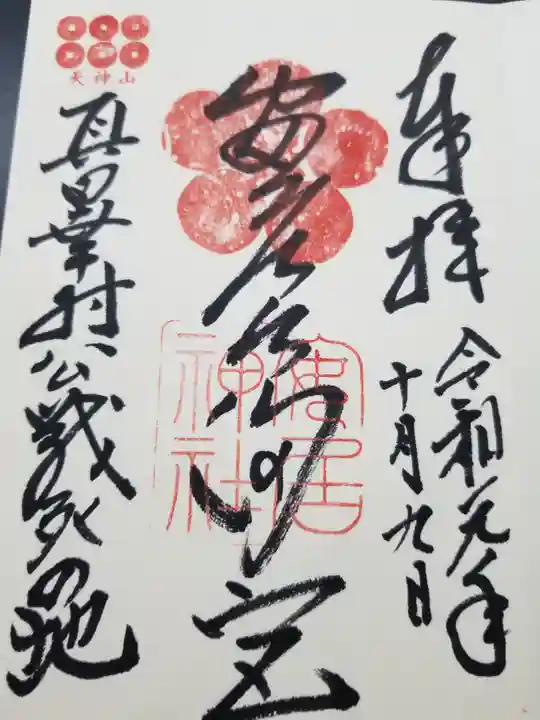 奉拝
令和元年
十月九日
安居神社
天神山
真田幸村公戦死の地